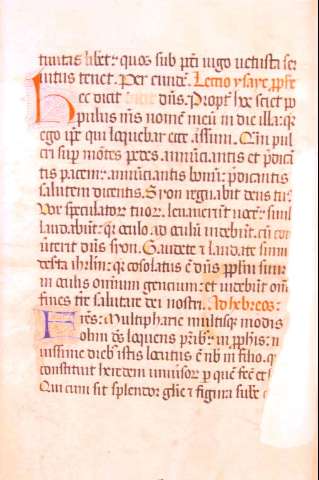 tiuitas libet: quos sub pcti iugo uetusta ser
uitus tenet. Per eundē. Lectio ysaye pphē
Hec dicit dn̄s. Propt' hoc sciet po
pulus m̄s nomē meū in die illa: qr
ego ip̄e qui loquebar ecce assum. Q̄m pul
cri sup mōtes pedes annūciantis et p̄dicā
tis pacem: annūciantis bonū: p̄dicantis
salutem dicentis. Syon regnabit deus tu'.
Vox speculatorū tuorū. leuauerūt uocē: simul
laudabūt: qr oculo ad oculū uidebūt. cū con
uerterit dn̄s syon. Gaudete et laudate simul
deserta ihrlm: qr cōsolatus ē dn̄s pplm suū
in oculis omnium gencium: et uidebūt om̄s
fines tr̄e salutare dei nostri. Ad hebreos:
Fr̄es: Multipharie multisqz modis
olim ds̄ loquens p̄ribz in pphis: n
uissime diebz istis locutus ē nb̄ in filio. q
constituit heredem uniuersorū p quē fec et
Qui cum sit splendor glīe et figura sube